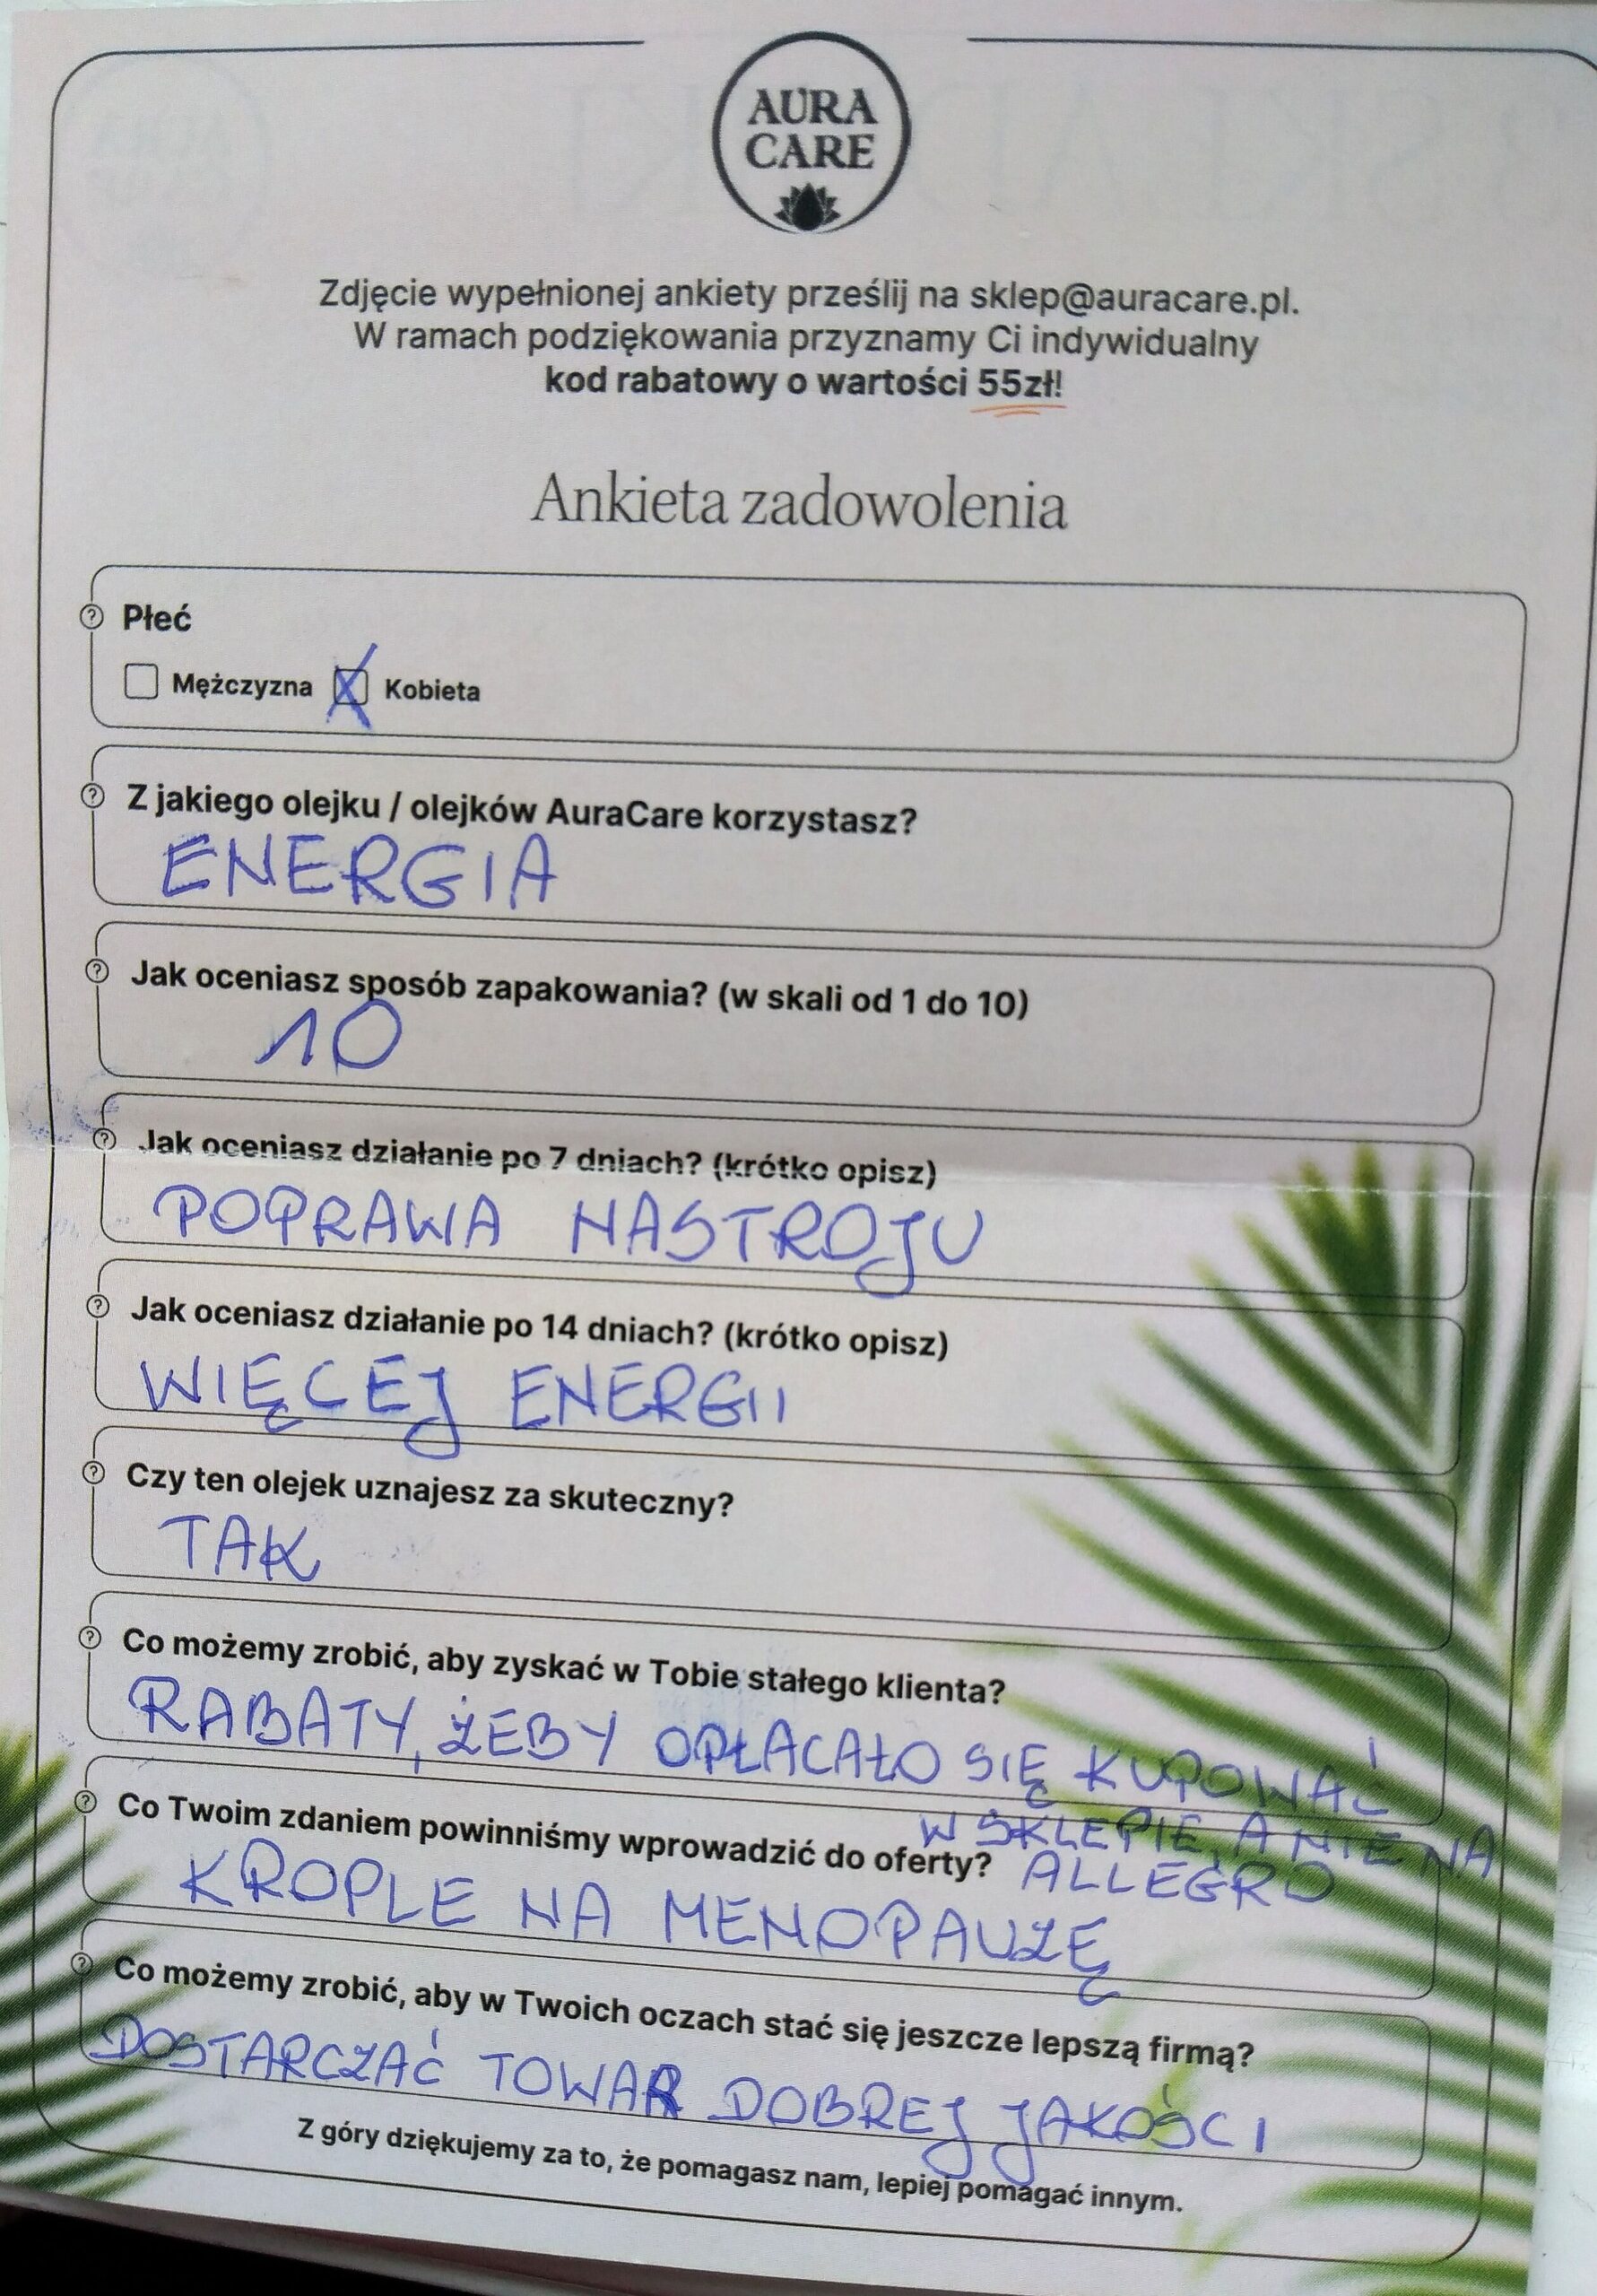 AURA
CARE
Zdjęcie wypełnionej ankiety prześlij na sklep@auracare.pl.
W ramach podziękowania przyznamy Ci indywidualny
kod rabatowy o wartości 55zł!
Ankieta zadowolenia
Płeć
Mężczyzna Kobieta
Z jakiego olejku / olejków AuraCare korzystasz?
ENERGIA
Jak oceniasz sposób zapakowania? (w skali od 1 do 10)
10
Jak oceniasz działanie po 7 dniach? (krótko opisz)
POPRAWA NASTROJU
Jak oceniasz działanie po 14 dniach? (krótko opisz)
WIĘCEJ ENERGII
Czy ten olejek uznajesz za skuteczny?
TAK
Co możemy zrobić, aby zyskać w Tobie stałego klienta?
RABATY, ŻEBY OPŁACAŁO SIĘ KUPOWAĆ
W SKLEPIE, A NIE NA
ALLEGRO
Co Twoim zdaniem powinniśmy wprowadzić do oferty?
KROPLE NA MENOPAUZĘ
Co możemy zrobić, aby w Twoich oczach stać się jeszcze lepszą firmą?
DOSTARCZAĆ TOWAR DOBREJ JAKOŚCI
Z góry dziękujemy za to, że pomagasz nam, lepiej pomagać innym.